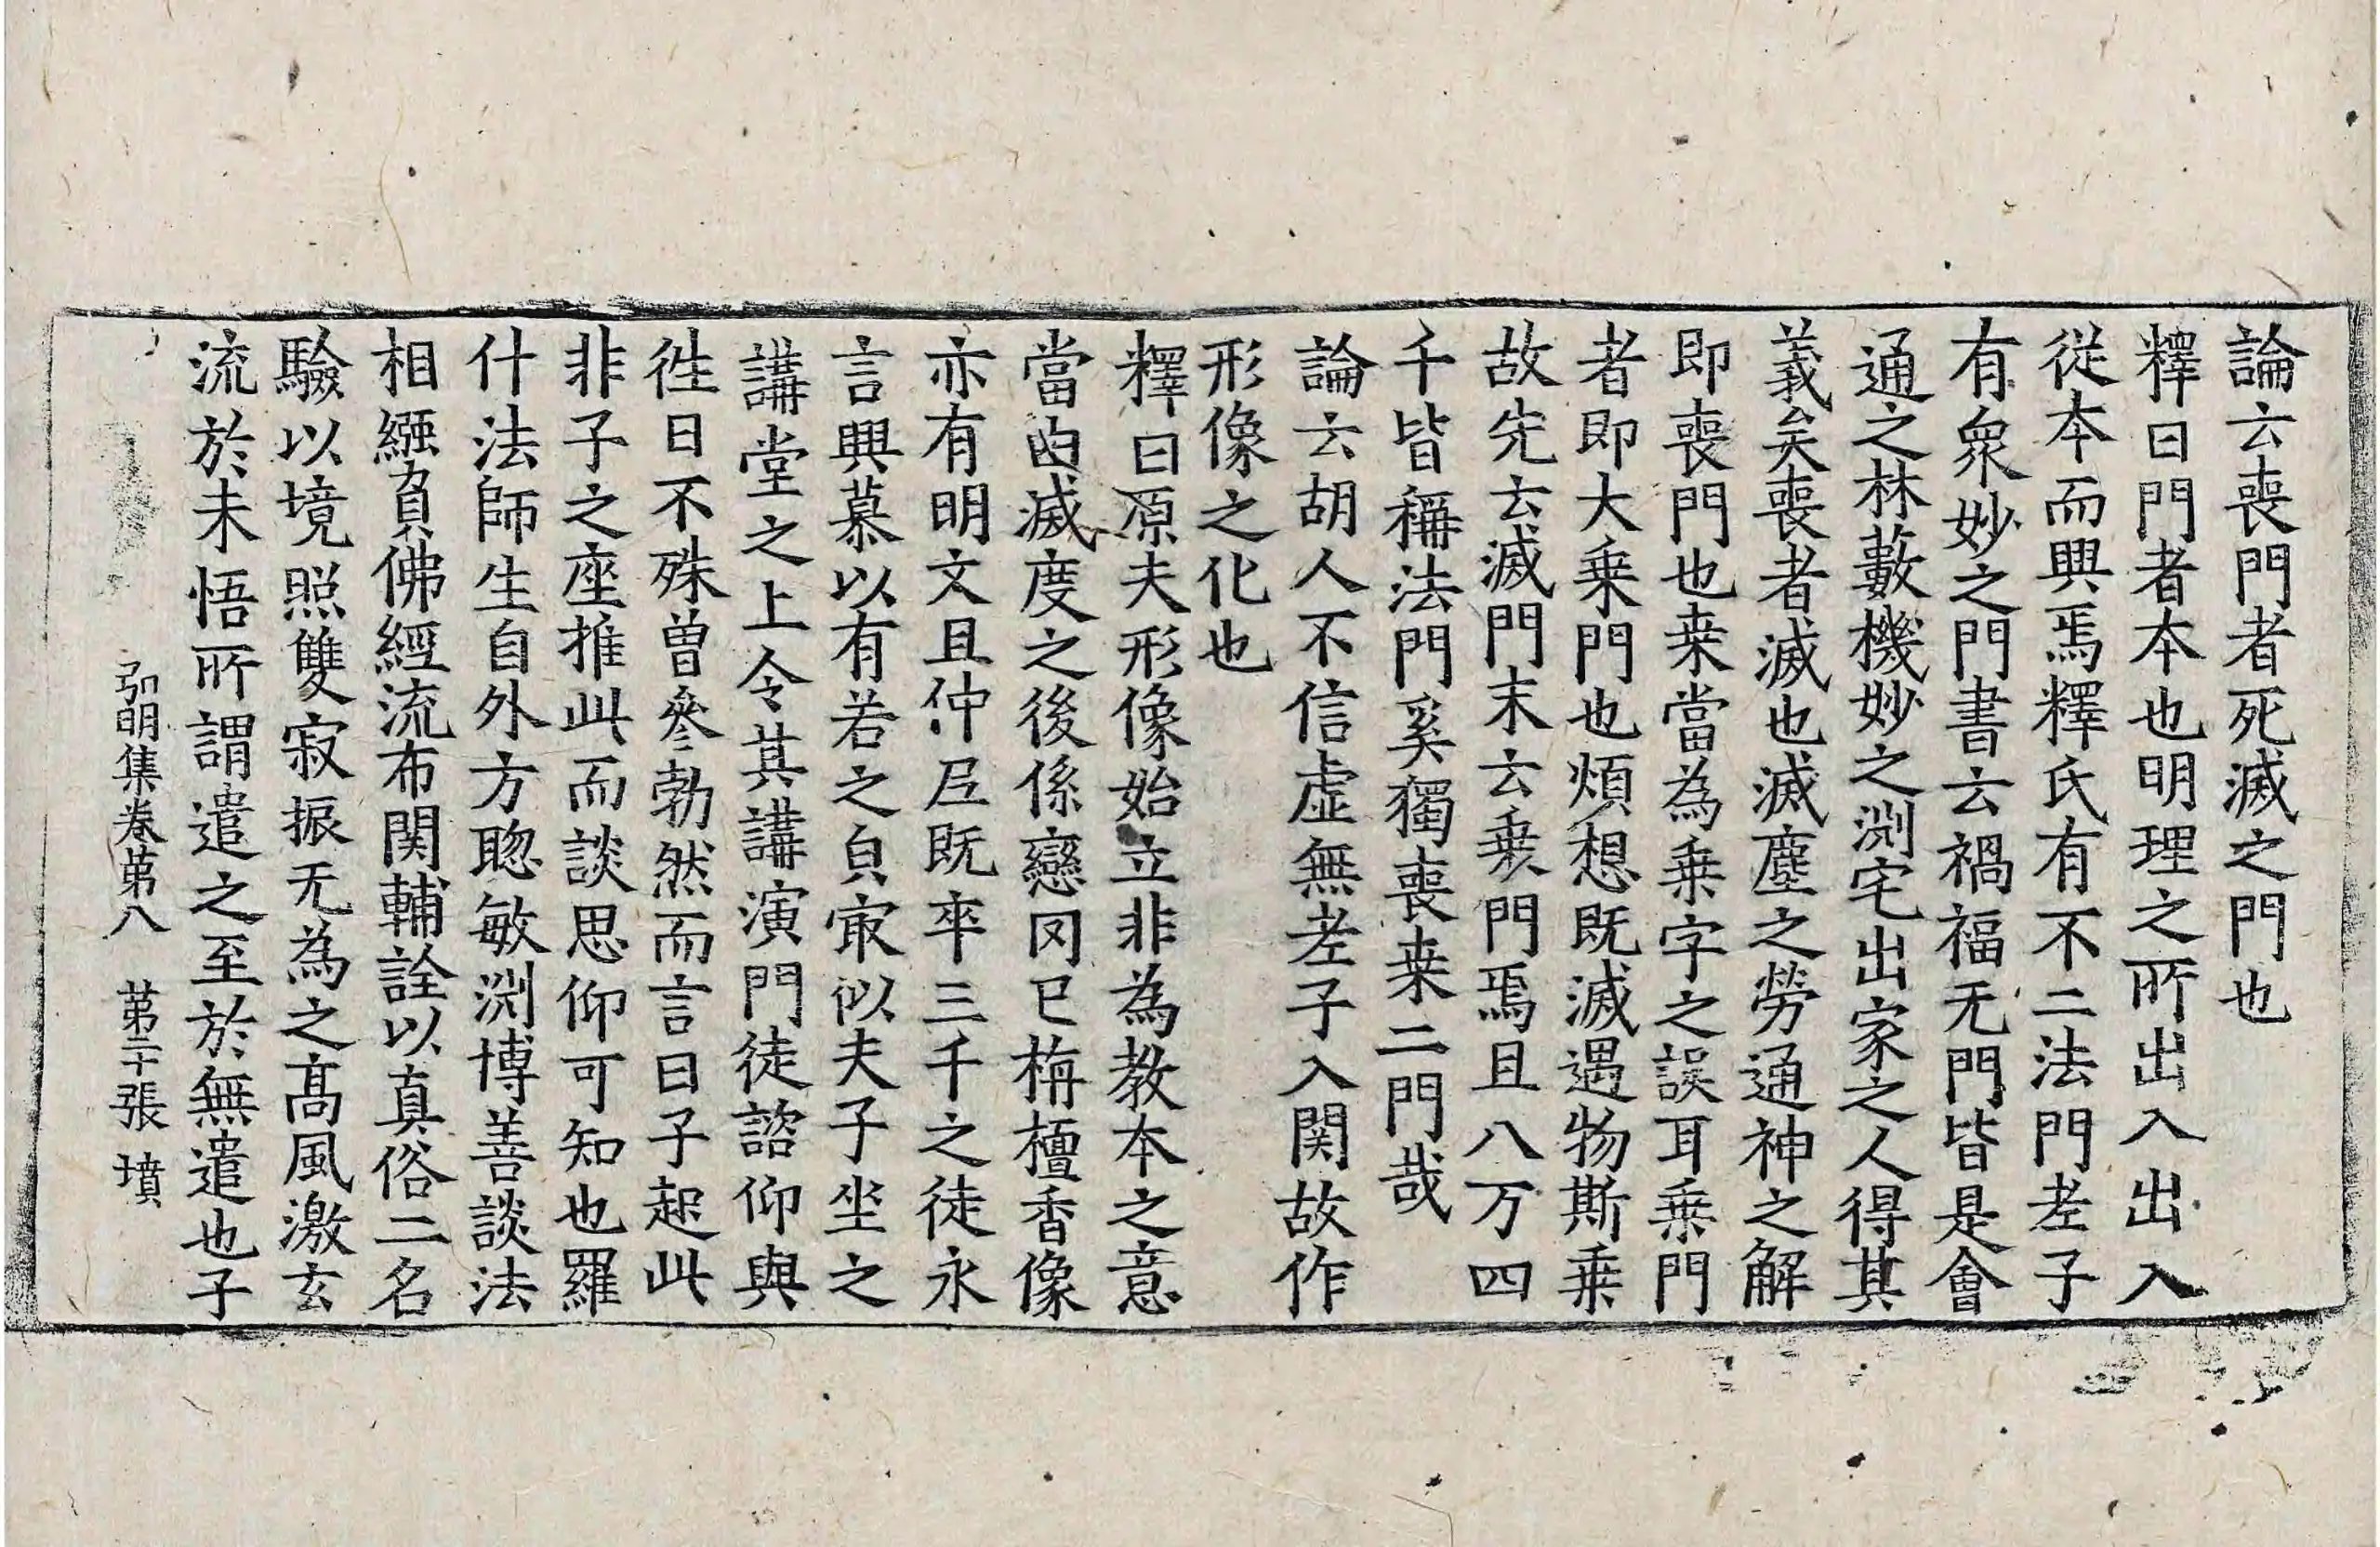 論云喪門者死滅之門也
釋曰門者本也明理之所出入出入
從本而興焉釋氏有不二法門老子
有衆妙之門書云禍福无門皆是會
通之林藪機妙之渕宅出家之人得其
義矣喪者滅也滅塵之勞通神之解
即喪門也桒當為乗字之誤耳乗門
者即大乗門也煩想既滅遇物斯乗
故先云滅門末云乗門焉且八万四
千皆稱法門奚獨喪桒二門哉
論云胡人不信虚無老子入関故作
形像之化也
釋曰原夫形像始立非為教本之意
當由滅度之後係戀罔已栴檀香像
亦有明文且仲尼既卒三千之徒永
言興慕以有若之皃㝡似夫子坐之
講堂之上令其講演門徒諮仰與
徃日不殊曽叅勃然而言曰子起此
非子之座推此而談思仰可知也羅
什法師生自外方聦敏渕博善談法
相繦負佛經流布関輔詮以真俗二名
驗以境照雙寂振无為之髙風激玄
流於未悟所謂遣之至於無遣也子
弘明集卷第八　第二十張　墳